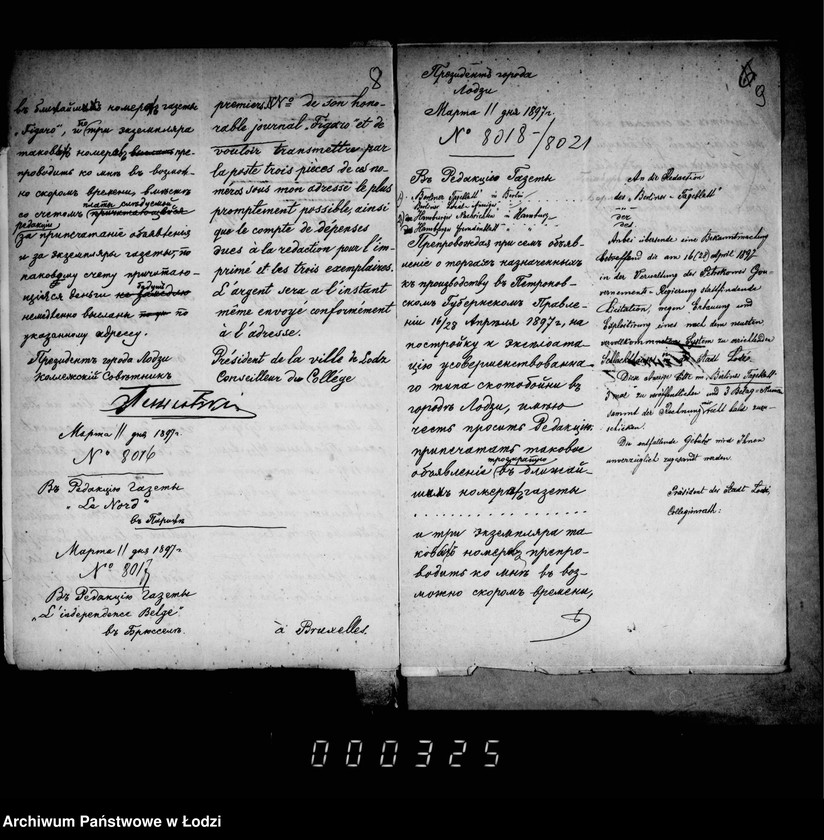 8
въ ближайшихъ номерахъ газеты
„Figaro", и три экземпляра
таковыхъ номеровъ пре-
проводить ко мнѣ въ возмож-
но скоромъ времени, вмѣстѣ
со счетомъ
редакціи
за припечатаніе объявленія
и за экземпляры газеты, по
каковому счету причитаю-
щіяся деньги будутъ
немедленно высланы по
указанному адресу.
Президентъ города Лодзи
Коллежскій Совѣтникъ
Марта 11 дня 1897 г.
№ 8016
Въ Редакцію Газеты
„Le Nord"
въ Парижѣ
Марта 11 дня 1897 г.
№ 8017
Въ Редакцію Газеты
„L'independence Belge"
въ Брюсселѣ.
premiers NNº de son hono-
rable journal „Figaro" et de
vouloir transmettre par
la poste trois pièces de ces no-
méros sous mon adresse le plus
promptement possible, ainsi
que le compte de dépenses
dues à la rédaction pour l'im-
primé et les trois exemplaires.
L'argent sera a l'instant
même envoyé conformement
à l'adresse.
Président de la ville de Lodz
Conseiller du Collége
à Bruxelles.
9
Президентъ города
Лодзи
Марта 11 дня 1897 г.
№ 8018-/8021
Въ Редакцію Газеты
1) „Berliner Tageblatt" въ Berlin
„Hamburger Nachrichten" въ Hamburg
Препровождая при семъ объяв-
леніе о торгахъ назначенныхъ
къ производству въ Петроков-
скомъ Губернскомъ Правле-
ніи 16/28 Апрѣля 1897 г., на
постройку и эксплоата-
цію усовершенствованна-
го типа скотобойни въ
городѣ Лодзи, имѣю
честь просить Редакцію
припечатать таковое
объявленіе троекратно въ ближай-
шихъ номерахъ газеты
. . . . . . . . . . . . . . .
и три экземпляра та-
ковыхъ номеровъ препро-
водить ко мнѣ въ воз-
можно скоромъ времени,
An die Redaction
des „Berliner-Tageblatt"
der
des
Anbei übersende eine Bekanntmachung
betreffend die am 16 (28) April 1897
in der Verwaltung des Petrokower Gou-
vernements-Regierung stattfindende
Licitation, wegen Erbauung und
Exploitirung eines nach dem neuesten
vervollkommneten System zu errichtenden
Stadt Lodz.
„Berliner Tageblatt"
3 mal zu veröffentlichen und 3 Beleg-
sammt der Rechnung recht bald zuzu-
schicken.
Die entfallende Gebühr wird Ihnen
unverzüglich zugesandt werden.
Präsident der Stadt Lodz,
Collegienrath:
000325
Archiwum Państwowe w Łodzi